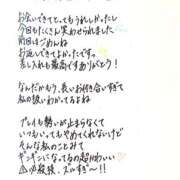 お会いできてとってもうれしかったし
今日もたくさん笑わせられました
前回はごめんね
お返しできてよかったですっ。
差し入れも最高ですありがとう!
なんだかもう、長いお付き合いすぎて
私の扱いわかってるよね
プレイも勢いが止まらなくて
いつもいってもやめてくれないけど
そんな私のことみて
ギンギンになってるの超かわいい
凸の放棲、ズルすぎ〜!!